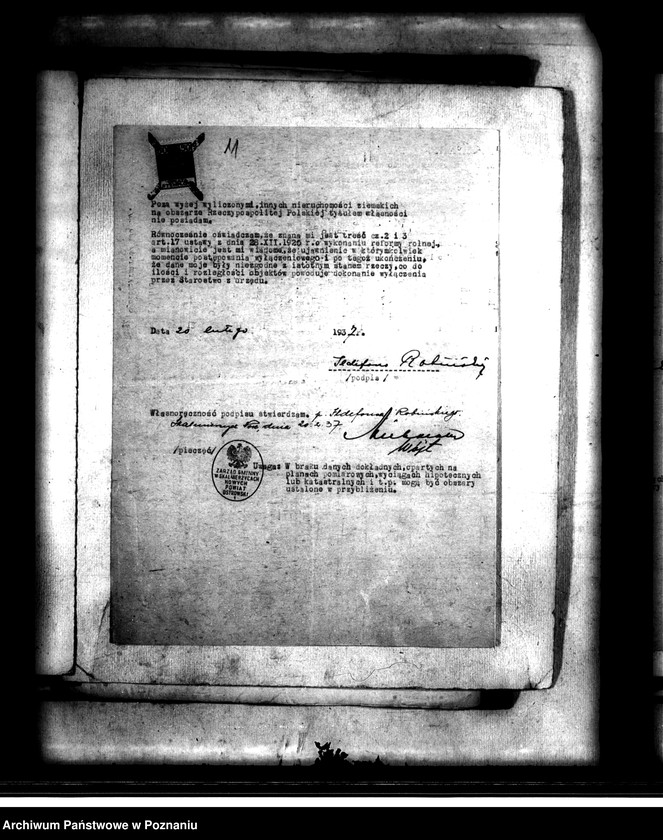 11
Poza wyżej wyliczonymi, innych nieruchomości ziemskich
na obszarze Rzeczypospolitej Polskiej tytułem własności
nie posiadam.
Równocześnie oświadczam, że znana mi jest treść cz.2 i 3
art.17 ustawy z dnia 28.XII.1925 r. o wykonaniu reformy rolnej,
a mianowicie jest mi wiadome, że ujawnienie w którymkolwiek
momencie postępowania wyłączeniowego i po tegoż ukończeniu,
że dane moje były niezgodne z istotnym stanem rzeczy, co do
ilości i rozległości objektów powoduje dokonanie wyłączenia
przez Starostwo z urzędu.
Data 20 lutego 1937 r.
Ildefons Robiński
/podpis/
Własnoręczność podpisu stwierdzam. p. Ildefonsa Robińskiego.
dnia 20.2.37.
Wójt
/pieczęć/
ZARZĄD GMINNY
W SKALMIERZYCACH
NOWYCH
POWIAT
OSTROWSKI
Uwaga: W braku danych dokładnych, opartych na
planach pomiarowych, wyciągach hipotecznych
lub katastralnych i t.p. mogą być obszary
ustalone w przybliżeniu.
Archiwum Państwowe w Poznaniu